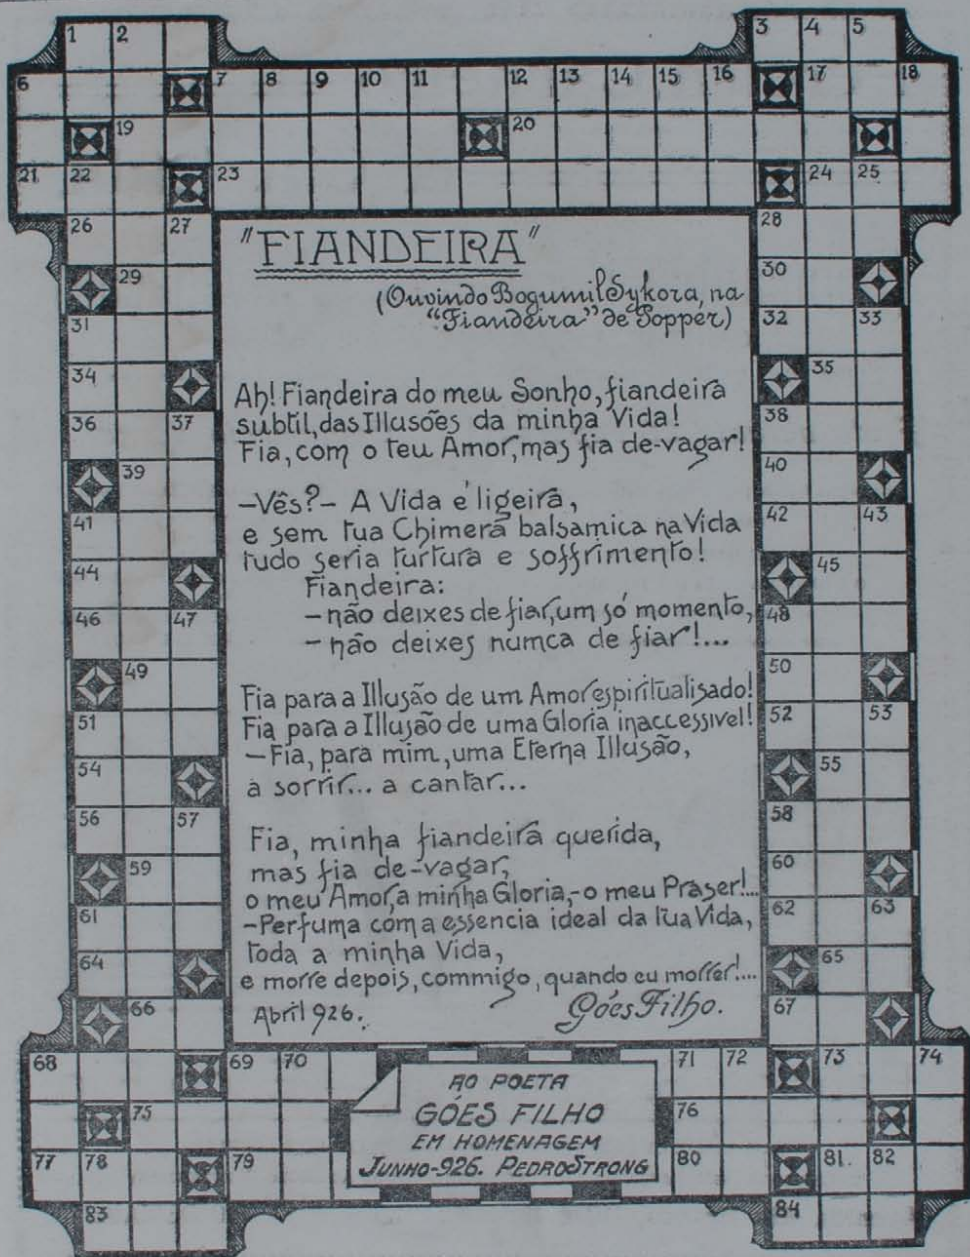 1 2 3 4 5
6 7 8 9 10 11 12 13 14 15 16 17 18
19 20
21 22 23 24 25
26 27 28
29 30
31 32 33
34 35
36 37 38
39 40
41 42 43
44 45
46 47 48
49 50
51 52 53
54 55
56 57 58
59 60
61 62 63
64 65
66 67
68 69 70 71 72 73 74
75 76
77 78 79 80 81. 82
83 84
"FIANDEIRA"
(Ouvindo Bogumil Sykora, na
"Fiandeira" de Popper)
Ah! Fiandeira do meu Sonho, fiandeira
subtil, das Illusões da minha Vida!
Fia, com o teu Amor, mas fia de-vagar!
-Vês?- A Vida é ligeira,
e sem tua Chimera balsamica na Vida
tudo seria turtura e soffrimento!
Fiandeira:
- não deixes de fiar, um só momento,
- não deixes numca de fiar!...
Fia para a Illusão de um Amor espiritualisado!
Fia para a Illusão de uma Gloria inaccessivel!
- Fia, para mim, uma Eterna Illusão,
a sorrir... a cantar...
Fia, minha fiandeira querida,
mas fia de-vagar,
o meu Amor, a minha Gloria, - o meu Praser!...
- Perfuma com a essencia ideal da tua Vida,
toda a minha Vida,
e morre depois, commigo, quando eu morrer!...
Abril 926. Góes Filho.
AO POETA
GÓES FILHO
EM HOMENAGEM
JUNHO-926. PEDROSTRONG